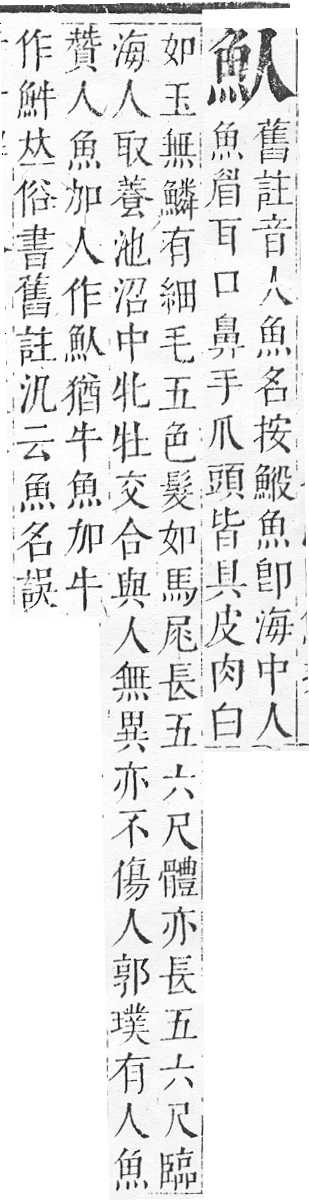 魜
舊註音人魚名按䱱魚卽海中人
魚眉耳口鼻手爪頭皆具皮肉白
如玉無鱗有細毛五色髮如馬尾長五六尺體亦長五六尺臨
海人取養池沼中牝牡交合與人無異亦不傷人郭璞有人魚
贊人魚加人作魜猶牛魚加牛
作𩵼𠀤俗書舊註汎云魚名誤